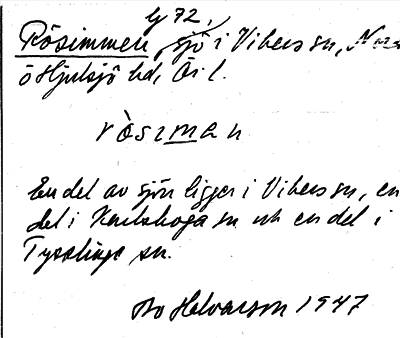 g 72,
Rösimmen, sjö i Vikers sn, Nora
o Hjulsjö hd, Ör. l.
ròsıman
En del av sjön ligger i Vikers sn, en
del i Karlskoga sn och en del i
Tysslinge sn.
Bo Halvarson 1947